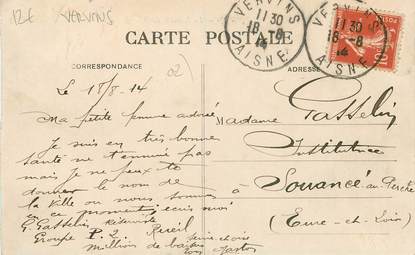 12€ VERVINS
VERVINS
11 30
18 -8
14
AISNE
VERVINS
11 30
18 -8
14
AISNE
10
CARTE POSTALE
CORRESPONDANCE
ADRESSE
Le 18/8 14
Ma petite femme adorée
Je suis en très bonne
santé ne t'ennuie pas
mais je ne peux te
donner le nom de
la ville ou nous sommes
en ce moment, écris moi
G. Gasselin Réserviste
Groupe P. 2. Rueil
Millions de baisers
Madame Gasselin
Institutrice
à Souancé au Perche
(Eure-et-Loir)